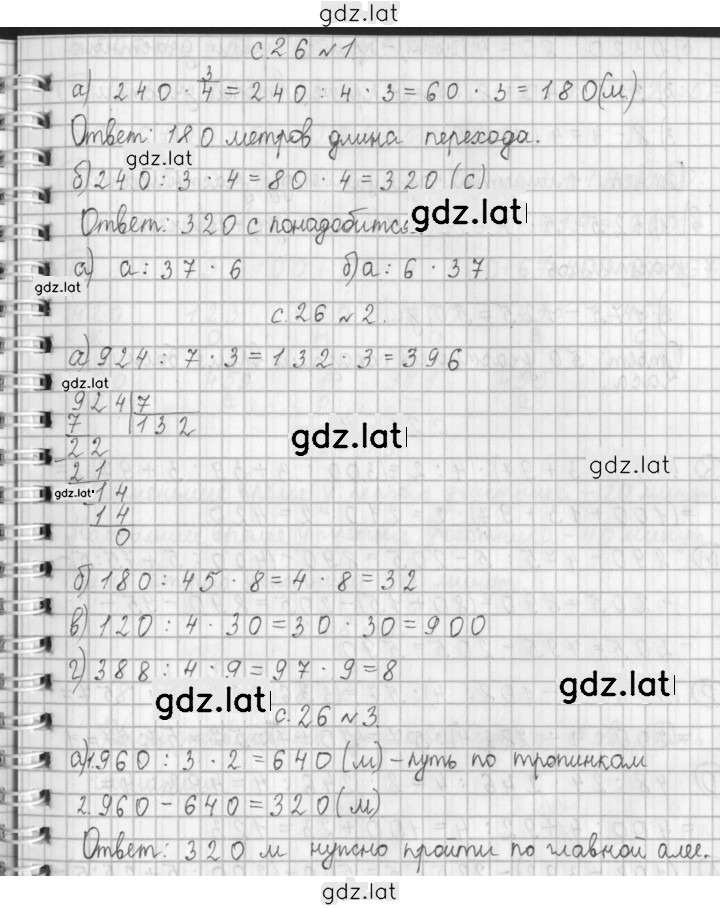 gdz.lat
с.26 №1
а) 240 · 3/4 = 240 : 4 · 3 = 60 · 3 = 180(м)
Ответ: 180 метров длина перехода.
gdz.lat
б) 240 : 3 · 4 = 80 · 4 = 320 (с)
gdz.lat
Ответ: 320 с понадобится.
а) а : 37 · 6 б) а : 6 · 37
gdz.lat
с.26 №2.
а) 924 : 7 · 3 = 132 · 3 = 396
gdz.lat
924 7
7 132
22
gdz.lat
21
gdz.lat
gdz.lat
14
14
0
б) 180 : 45 · 8 = 4 · 8 = 32
в) 120 : 4 · 30 = 30 · 30 = 900
г) 388 : 4 · 9 = 97 · 9 = 8
gdz.lat
gdz.lat
с.26 №3
а) 1. 960 : 3 · 2 = 640 (м) – путь по тропинкам
2. 960 – 640 = 320 (м)
Ответ: 320 м нужно пройти по главной алее.
gdz.lat